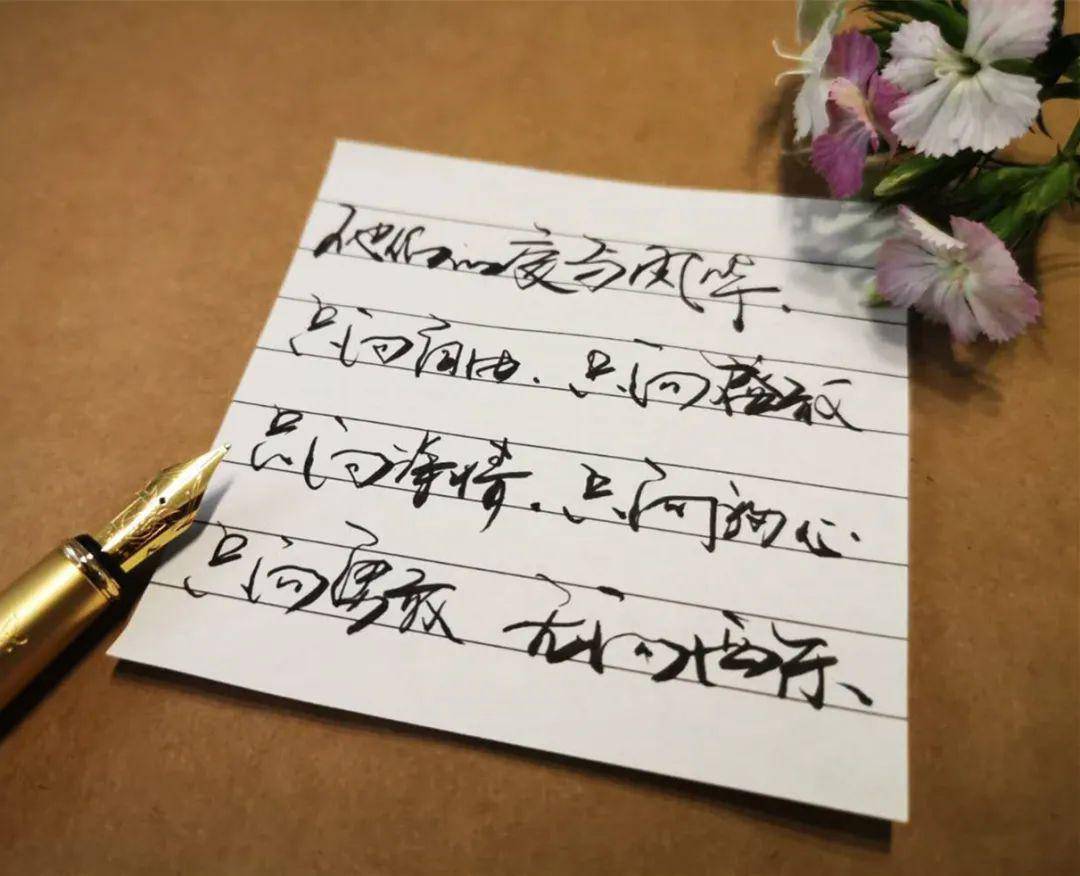 他们的度与风华、
只问自由、只问盛放
只问深情、只问初心
只问勇敢 无问西东、